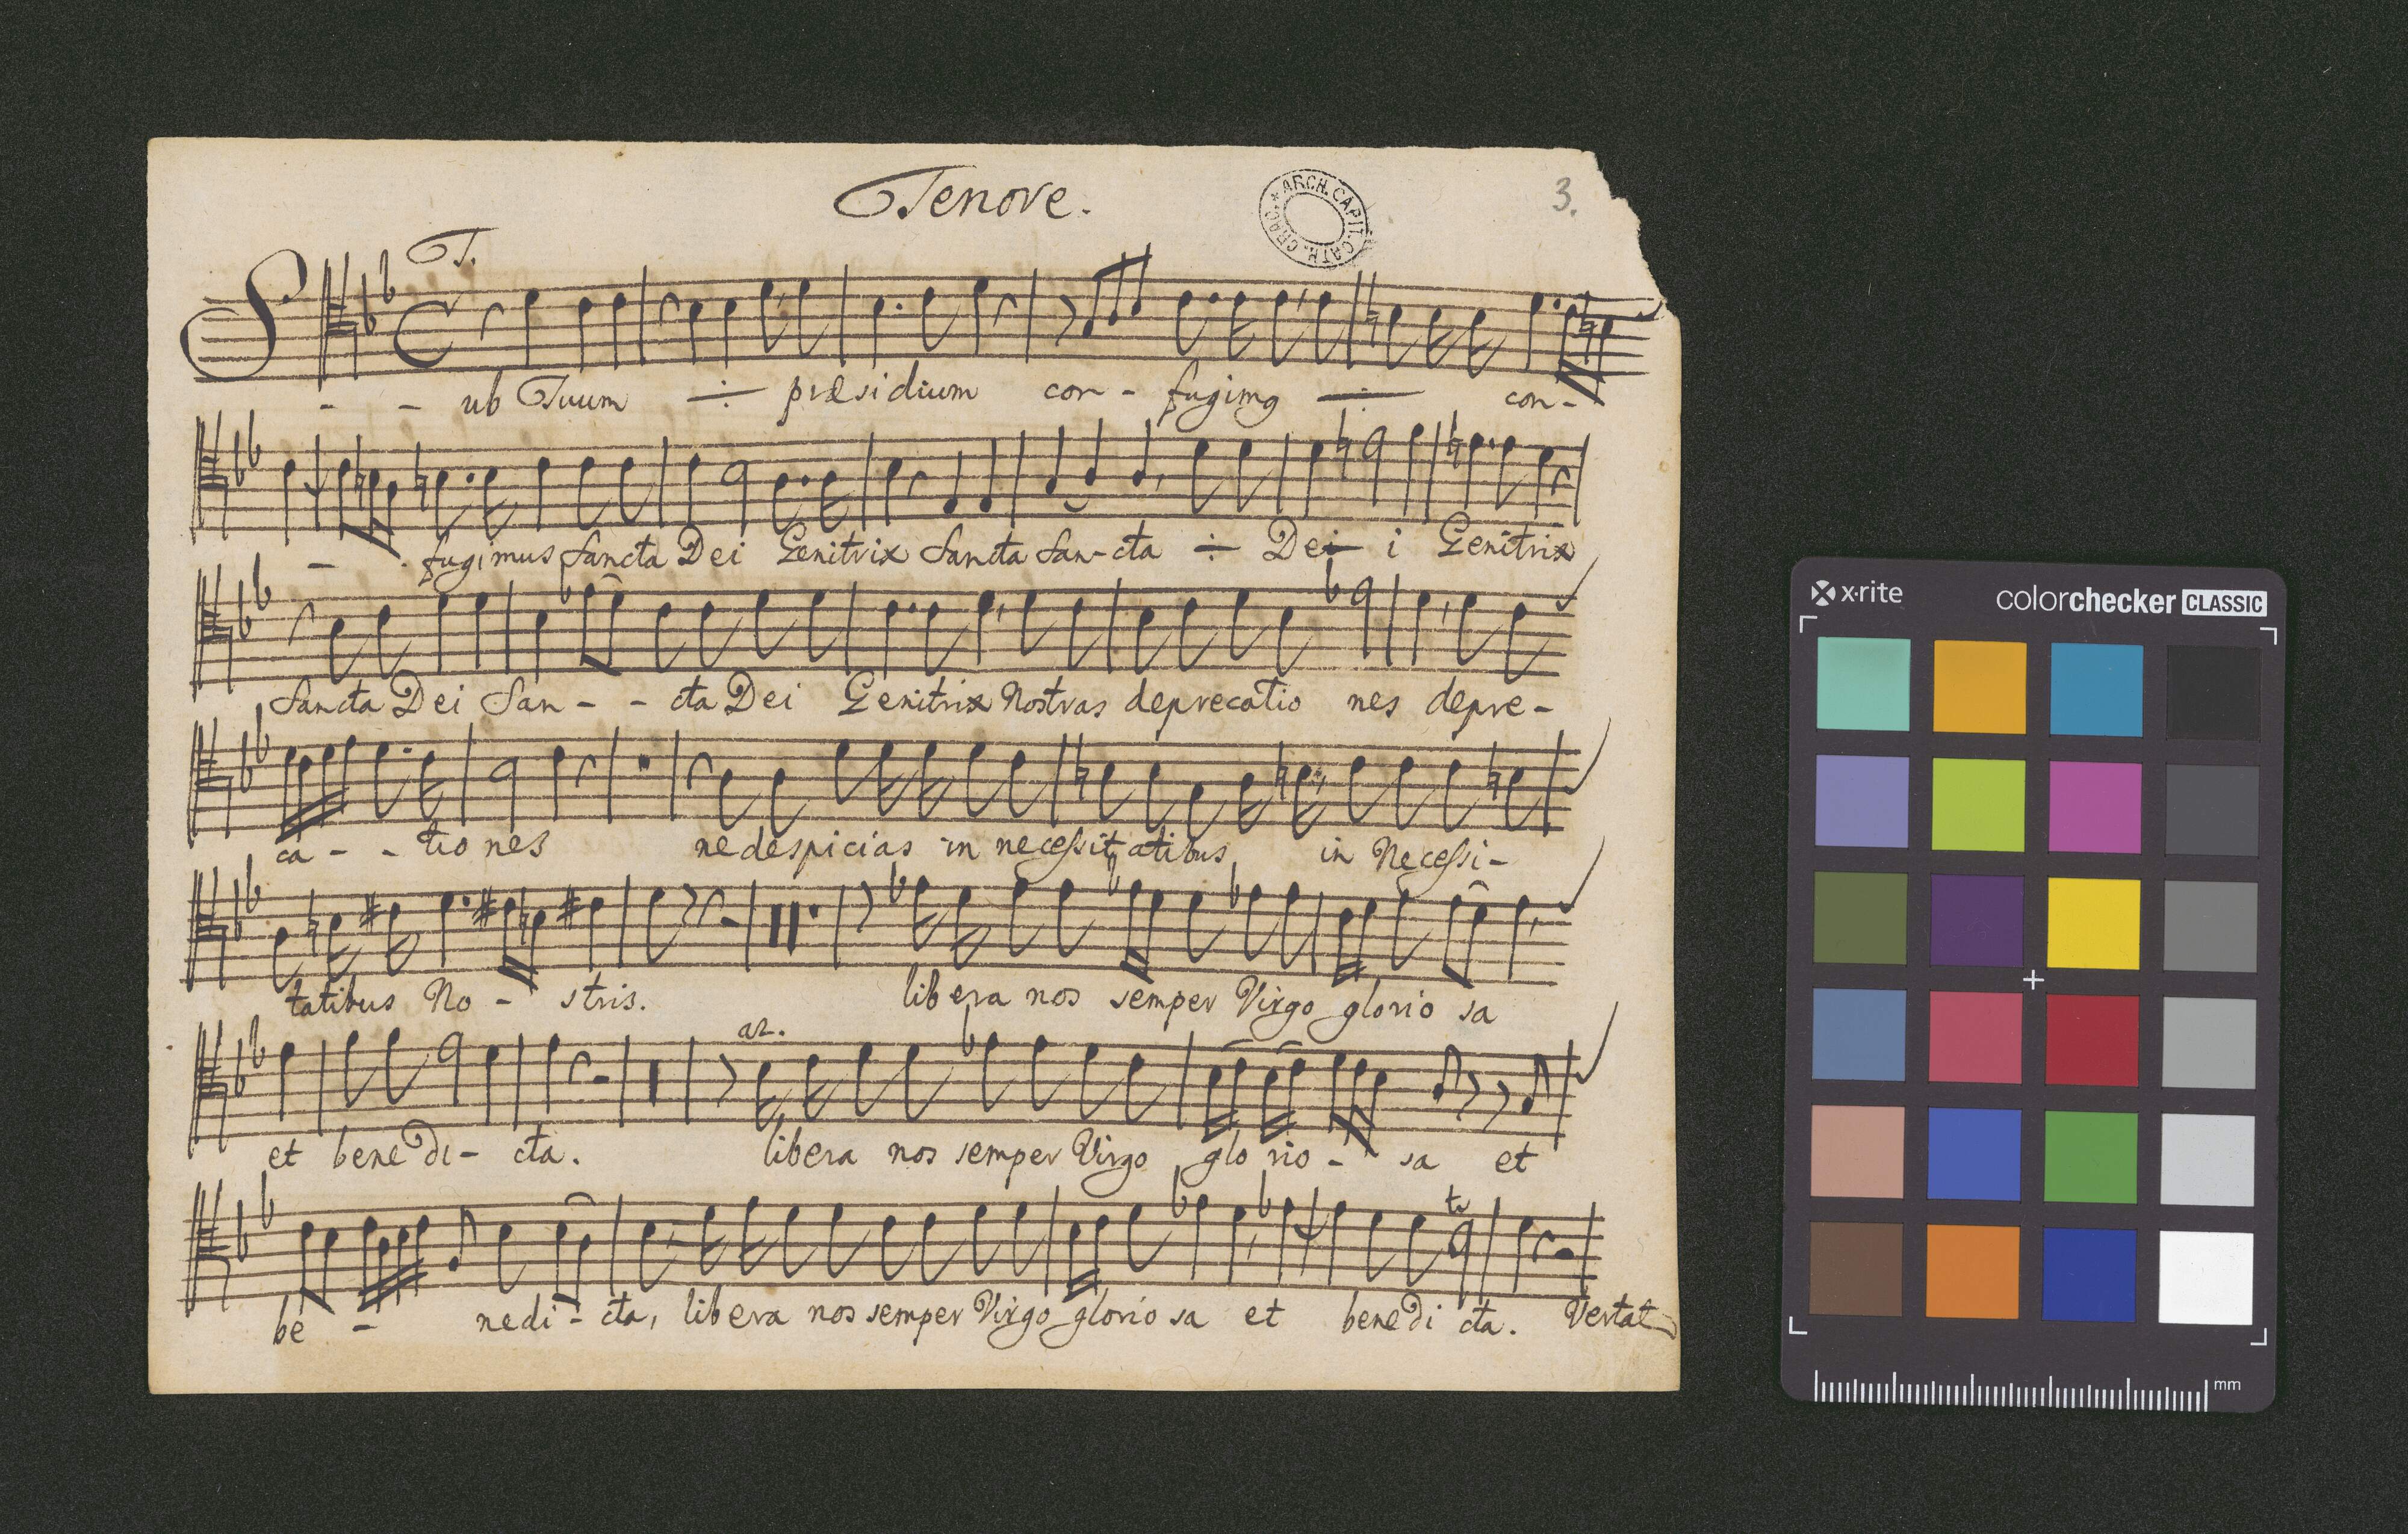 Tenore.
ARCH. CAPIT. CATH. CRAC.
3.
T.
S - - ub Tuum ÷ præsidium con - fugimꝰ ÷ con-
- . fugimus Sancta Dei Genitrix Sancta San-cta ÷ Dei - i Genitrix
Sancta Dei San - - cta Dei Genitrix Nostras deprecatio nes depre-
ca - - tio nes ne despicias in neceſsitatibus in Neceſsi-
tatibus No - stris. libera nos semper Virgo glorio sa
ar.
et bene di- cta. libera nos semper Virgo glo rio - sa et
tr
be - nedi - cta, libera nos semper Virgo glorio sa et bene di cta. Vertat
x·rite
colorchecker CLASSIC
mm